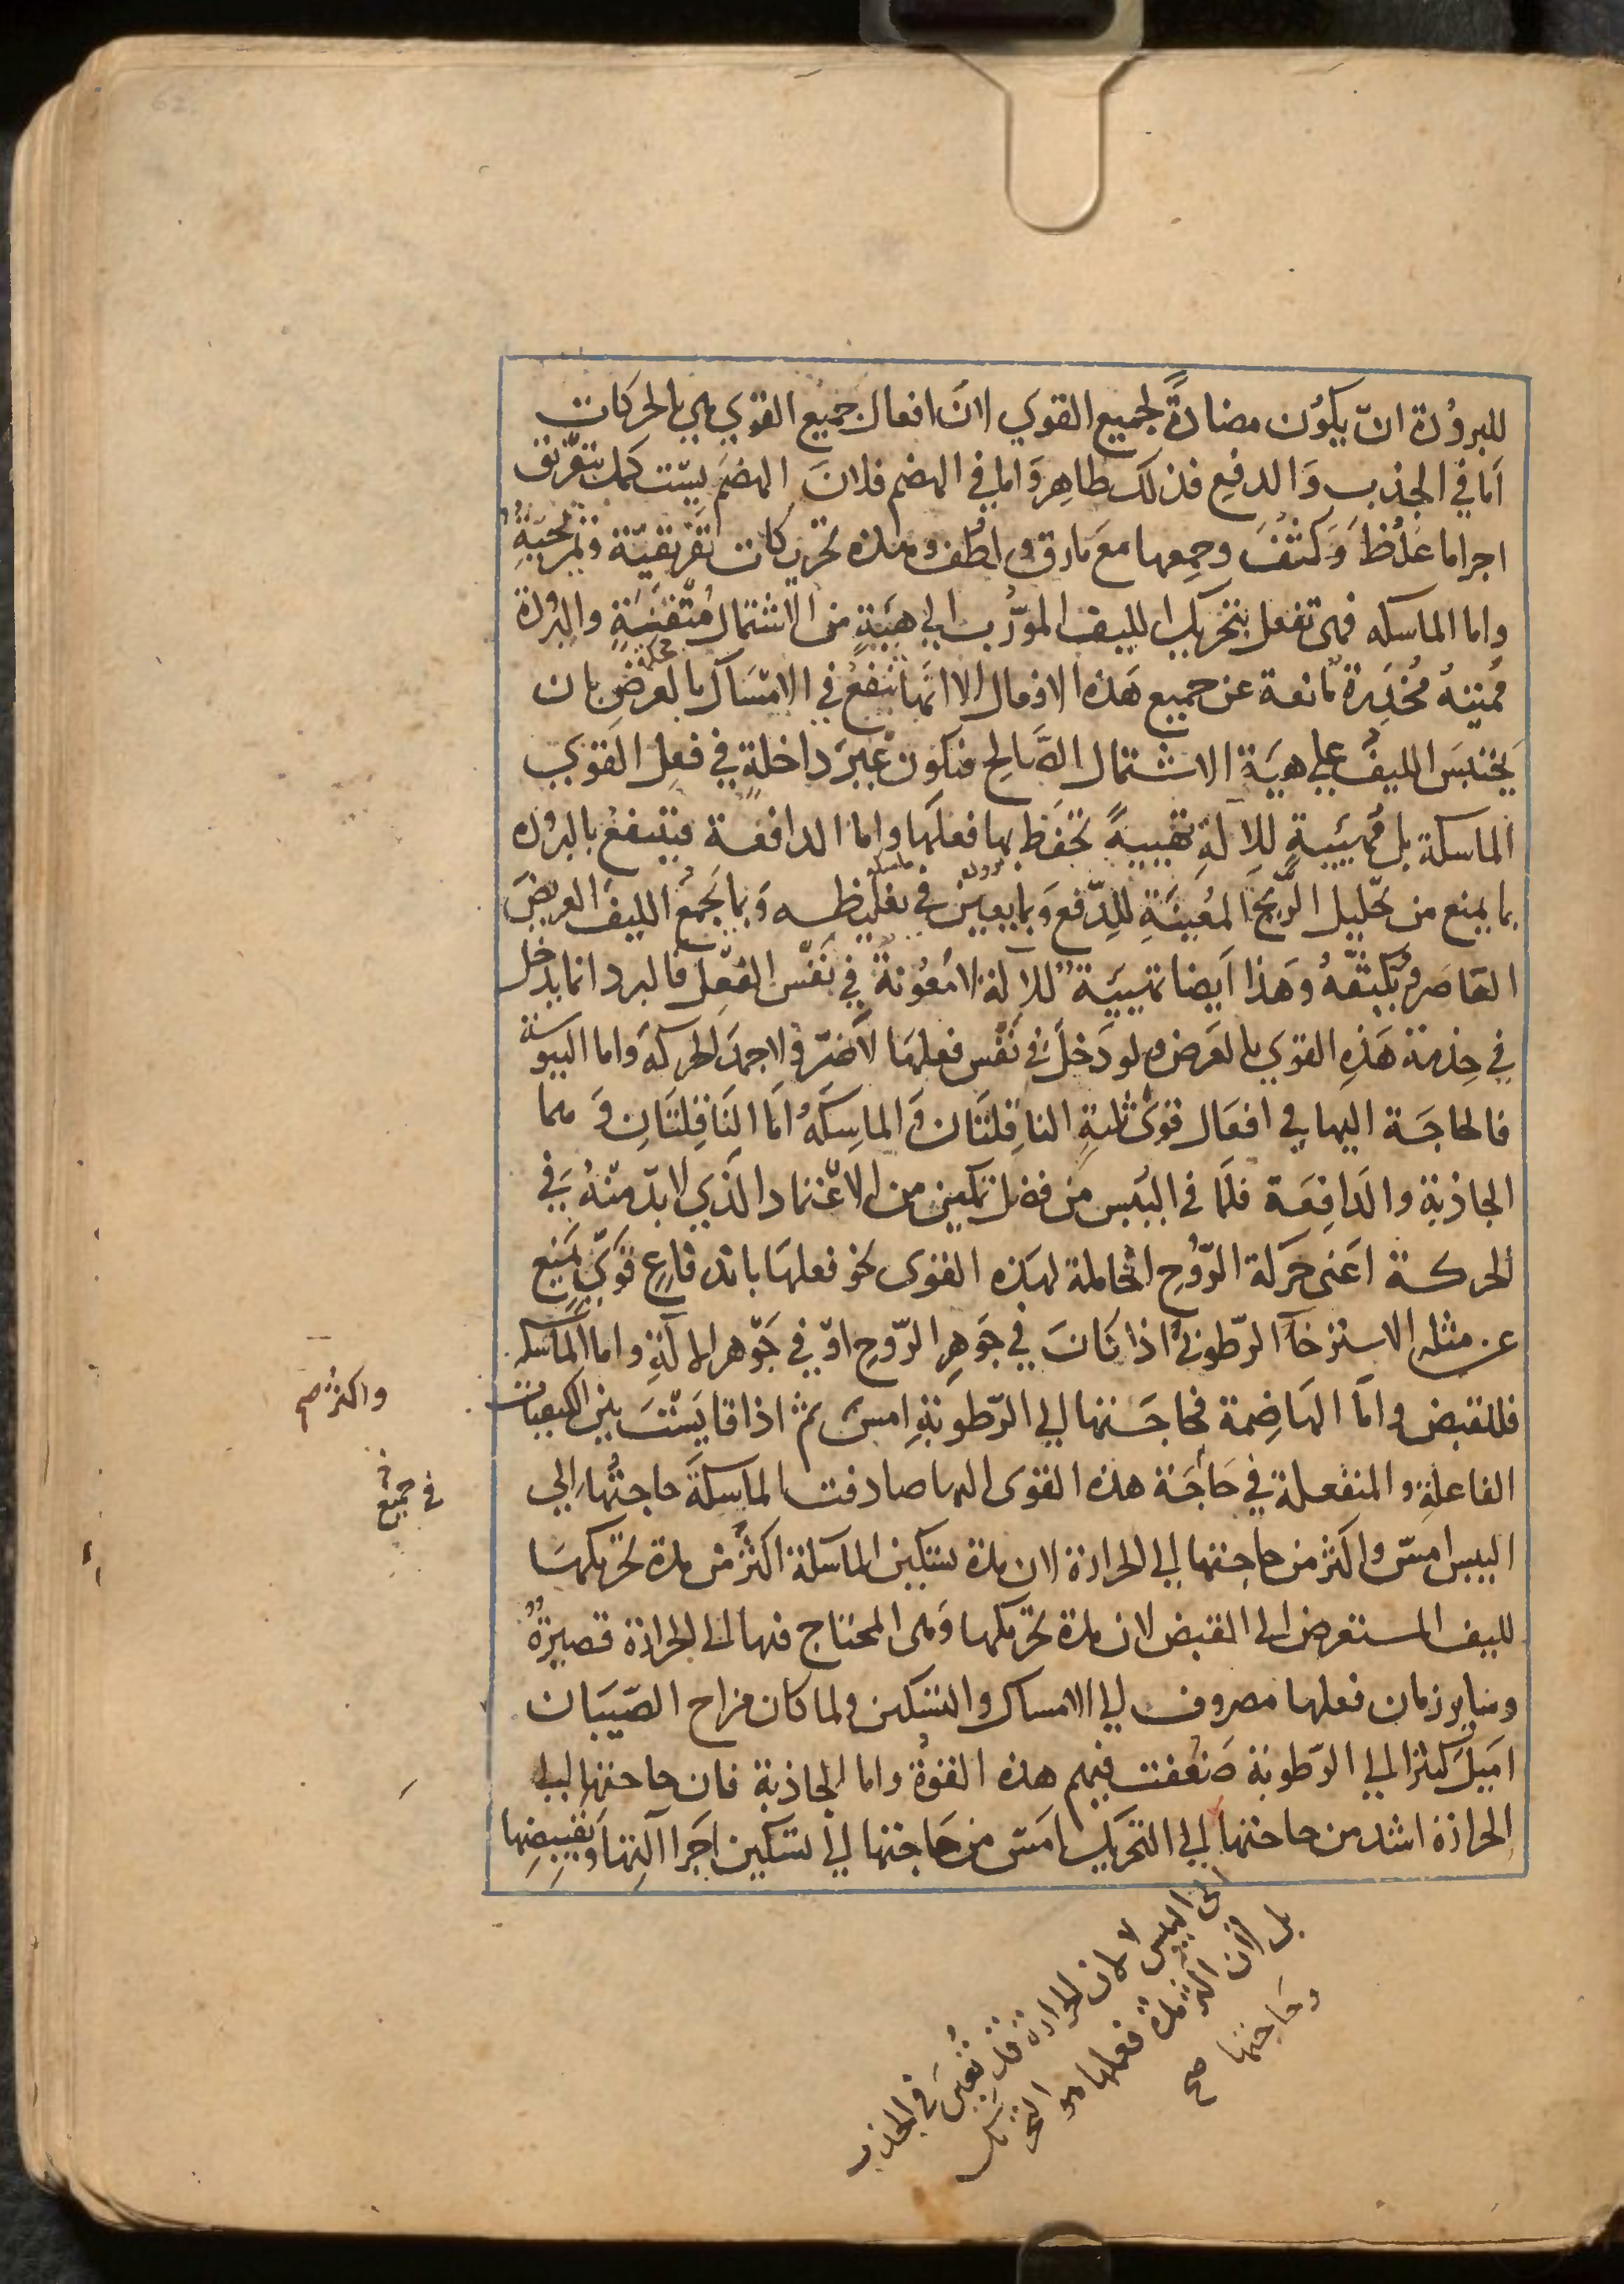 للبروُدة انّ يكوُن مضادةً لجميع القوي لانّ افعال جميع القوي هي بالحركات
اَما في الجذب وَالدفع فذلك ظاهِر وَاما في الهضم فلانَ الهضَم يسّتكمل بتفّريق
اجراما غلُظَ وَكثفَ وجمعها مع مارق ولطُف وهذه تحريكات تفَرّيقيّة وتمزيجيّةٌ
واما الماسكه فهى تفعل بتحريك الليف المورّب الي هيَئةٍ من الاشتمال مُتّقنَةٍ والبرودة
مُميتةٌ مُخدِرة مانعة عن جميع هَذه الافعال الا انّها تنفعُ في الامسَاك بالعرضِ بان
يَحتبسَ الليفُ علي هيَئة الاشتمال الصَّالح فتكون غَيرَ داخلةٍ في فعِل القوي
الماسكة بل مُهيّئةٍ للالَةِ تهيئةً تحفَظ بها فعلهَا واما الدافعة فيتنفعُ بالبروده
بما يمنع من تحّليل الرّيحَ المعُينَةِ للدّفع وَبما يعين في تغليظه وَبما يَجمَعُ الليفَ العريضَ
العَاصَر ويُكثّفهُ وَهذا اَيضا تهيئيةٌ للالة لا مَعُونةٌ في نَفّس الفعّل فالبرد انما يدخل
في خِدمة هَذِه القوي بالعَرض ولو دَخلَ في نَفْس فعلهَا لاَضرّ ولاجمدَ الحركةَ واما اليبوسة
فالحاجَة اليها في افعَال قوَى ثلثةٍ الناقِلتَان وَالماسِكَهُ اَما النَاقِلتَانِ وَ هما
الجاذبة والدَافِعَة فلمَا في اليُبس من فضل تمكين من الاعّتماد الذّي لا بدّ منّهُ في
الحركة اَعنى حَركة الرّوُح الحاملة لهذه القوى نحو فعلهَا باندفاعِ قوَيّ يمنع
عن مثله الاسترخاَ الرّطوبي اذا كانَ في جَوهِر الرّوحِ اوّ في جَوّهر الالَةِ واما الماسكه
فللقبض واَما الهَاضِمة فحاجَتها الي الرّطوبةِ امسَ ثم اذا قايَسّتَ بين الكيفيات
الفاعلة والمنفعلة في حَاجَة هذه القوى اليها صادفت الماَسِكَةَ حاجتُها الي
اليبس امسّ واكثر من حاجتها الي الحرارة لان مدة تسكين الماسكة اكثر من مدة تحريكهَا
لليف المستعرض الى القبض لان مدة تحريكها وَهى المحتاج فيها الى الحرارة قصيرَةٌ
وسَاير زمان فعلها مصروف الي الامساك والتسكين ولما كان مزاح الصّبيَان
اميَلَ كثيرا الي الرّطوبة ضَعُفت فيهم هذه القوُة واما الجاذبة فان حاجتها الي
الحرارة اشد من حاجتها الي التحَريك امَسّ من حَاجتها الي تسَكين اَجَزا آلَتِها وَتقبيضِها
محلَّه
برودة
ماسكه
واكثر صح
في جميع
الى اليبس لا لان الحرارة قد تُعين في الجذب
بل لان اكثر مدة فعلها هو التحريك
وحاجتها صح